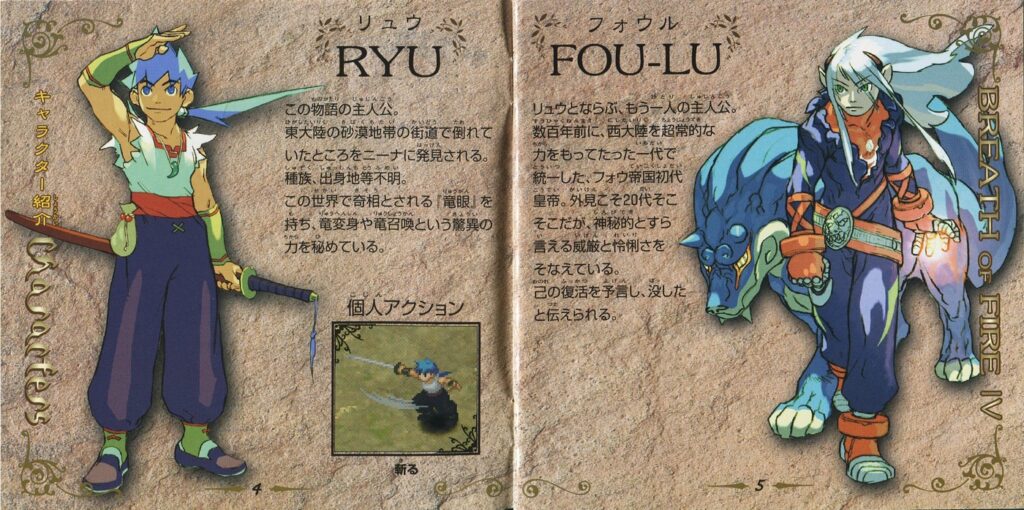 キャラクター紹介
Characters
リュウ
RYU
この物語の主人公。
東大陸の砂漠地帯の街道で倒れて
いたところをニーナに発見される。
種族、出身地等不明。
この世界で奇相とされる『竜眼』を
持ち、竜変身や竜召喚という驚異の
力を秘めている。
個人アクション
斬る
4
フォウル
FOU-LU
リュウとならぶ、もう一人の主人公。
数百年前に、西大陸を超常的な
力をもってたった一代で
統一した、フォウ帝国初代
皇帝。外見こそ20代そこ
そこだが、神秘的とすら
言える威厳と怜悧さを
そなえている。
己の復活を予言し、没した
と伝えられる。
BREATH OF FIRE IV
5